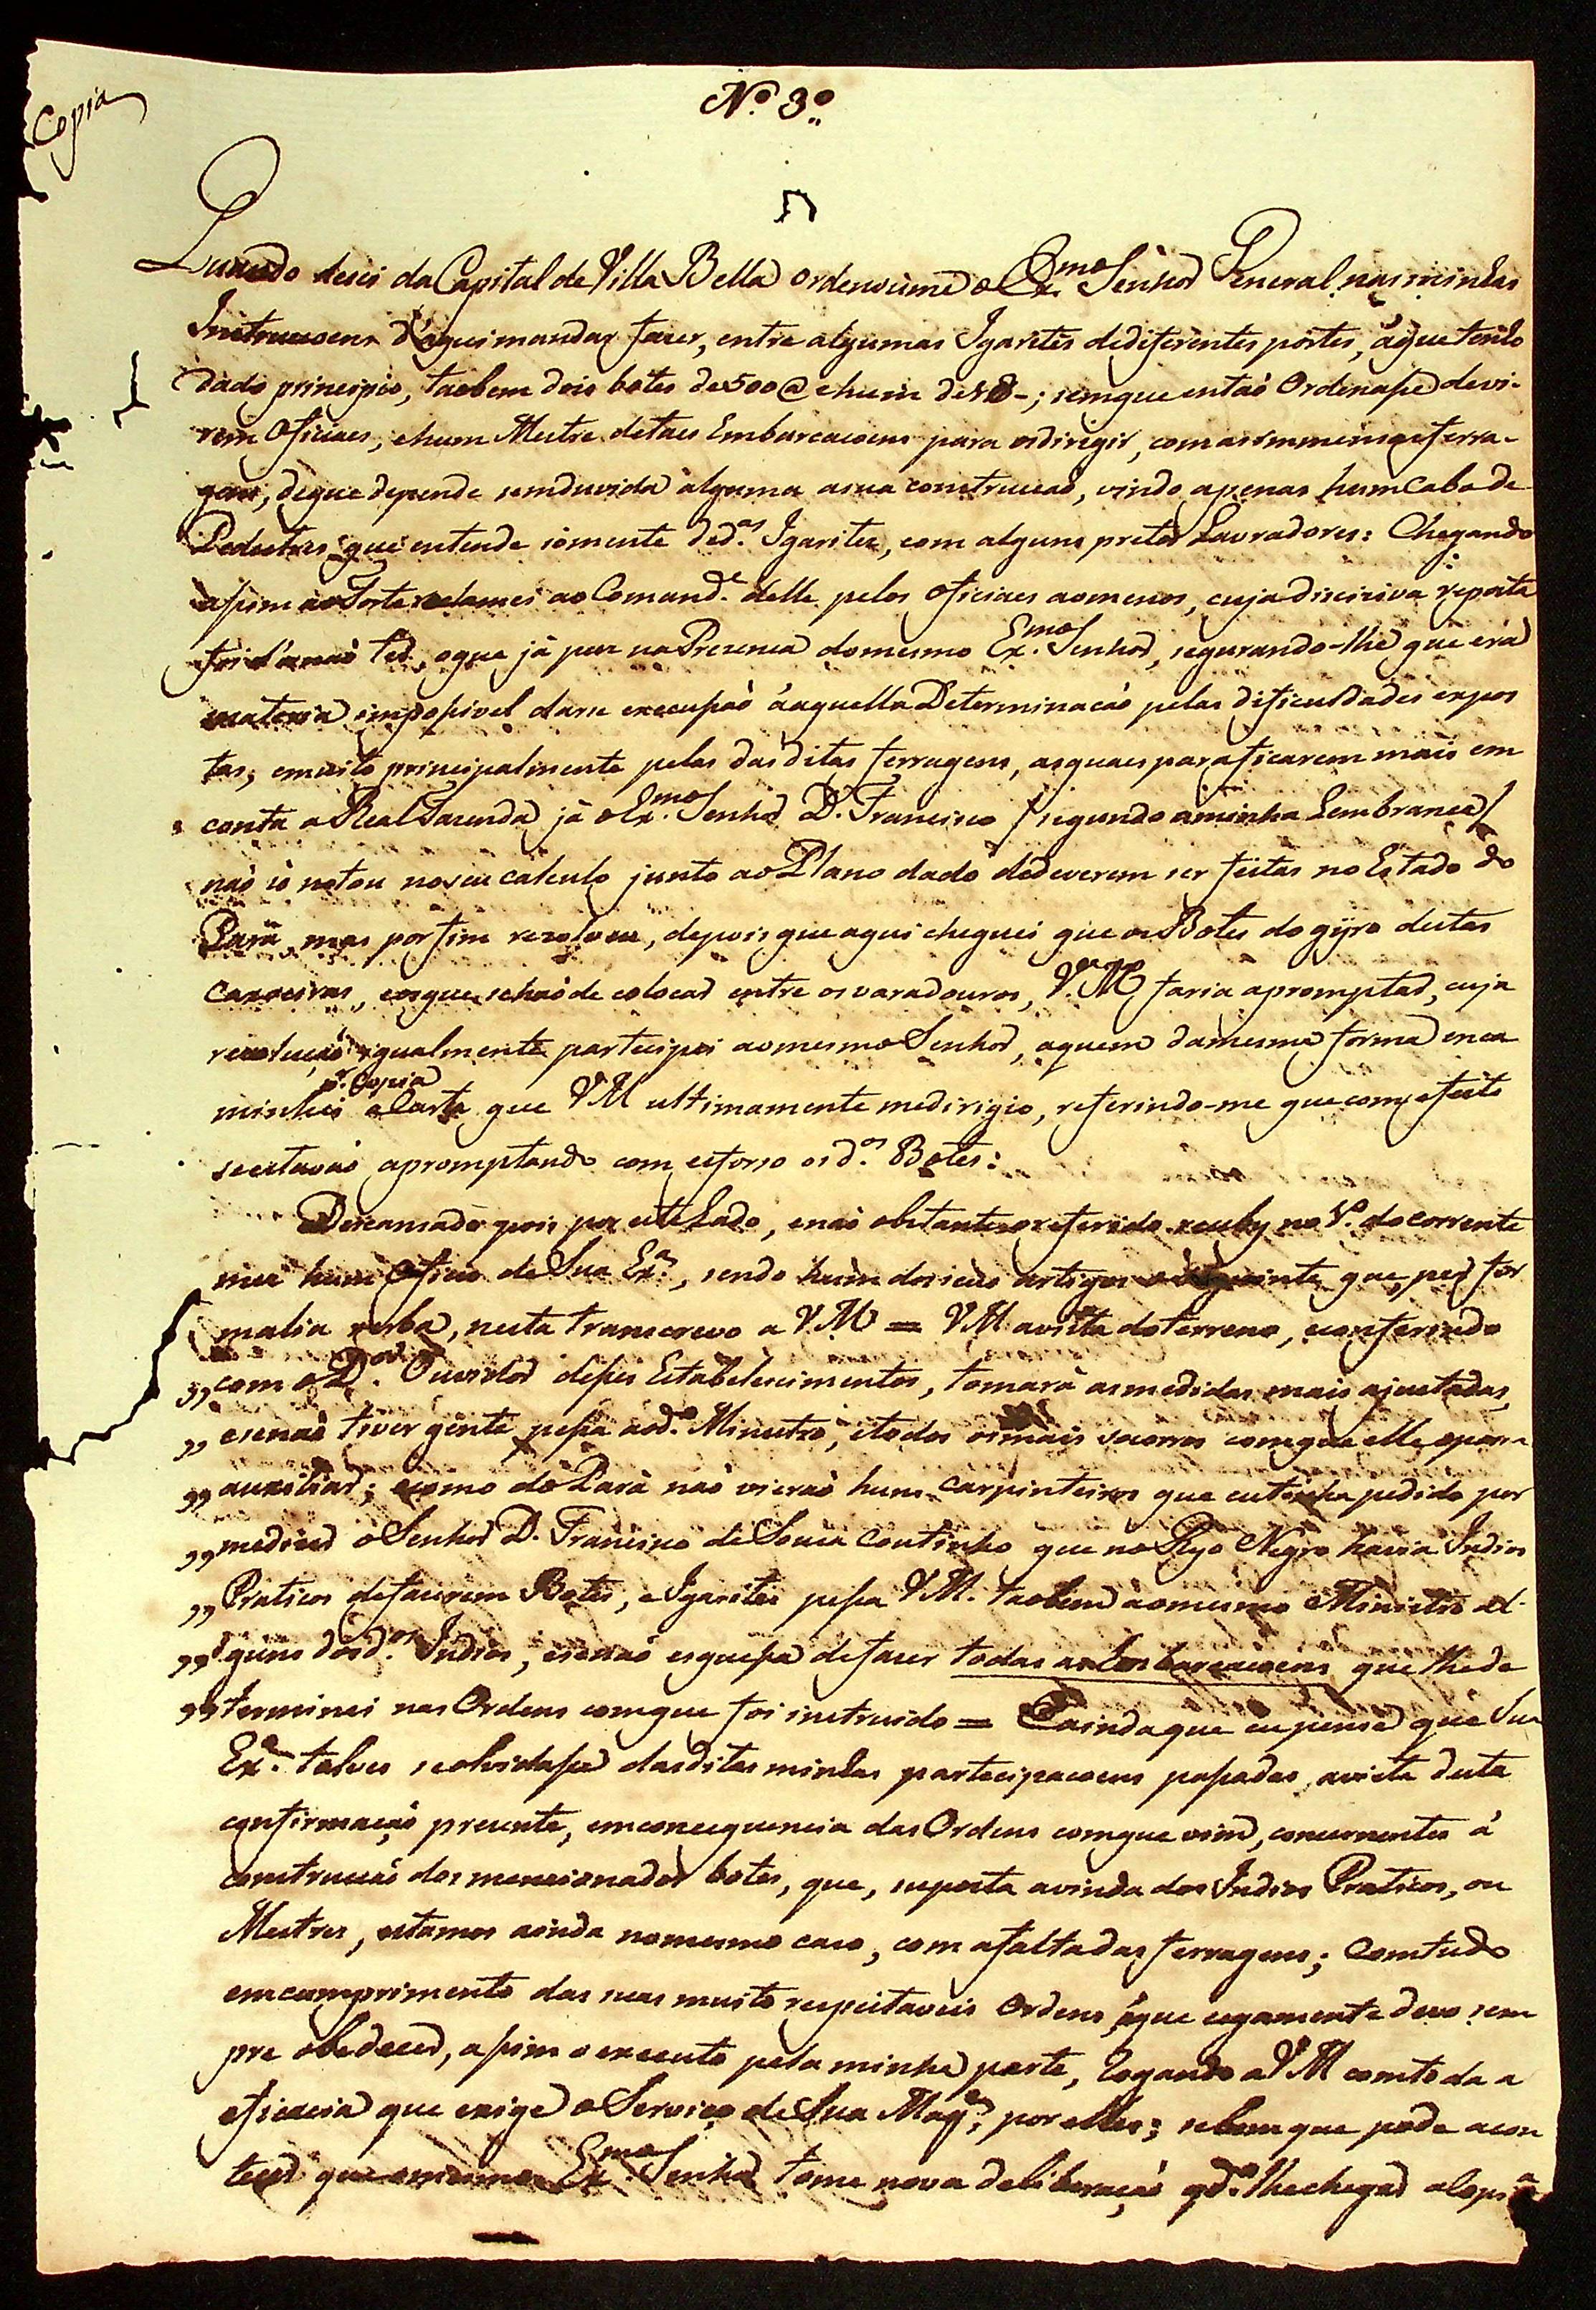 Copia
N.º 3.º
Quando desci da Capital de Villa Bella ordenoume o Ex.mo Senhor General nas minhas
Instrucoens d'aqui mandar fazer, entre algumas Igarités de diferentes portes, áque tenho
dado principio, taobem dois botes de 500 @ e hum de ; sem que entaõ Ordenase de vi-
rem Oficiaes, e hum Mestre de taes Embarcacoens para os dirigir, com as immensas ferra-
gens, de que depende sem duvida alguma a sua construcaõ, vindo apenas hum Cabo de
Pedestres que entende sómente de d.as Igarites, com alguns pretos Lavradores: Chegando
asim ao Forte reclamei ao Comand.e delle pelos Oficiaes ao menos, cuja discisiva reposta
foi d'anaõ ter, o que já puz na Prezenca do mesmo Ex.mo Senhor, segurando-lhe que era
materia imposivel darse execusaõ áaquella Determinacaõ pelas dificuldades expos
tas; e muito principalmente pelas das ditas ferragens, as quaes para ficarem mais em
conta a Real Fazenda já o Ex.mo Senhor D. Francisco / segundo a minha Lembranca /
naõ só notou no seu calculo junto ao Plano dado de deverem ser feitas no Estado do
Pará, mas por fim rezolveu, depois que aqui cheguei que os Botes do gyro destas
Caxoeiras, e os que se haõ de colocar entre os varadouros, V.M.ce faria apromptar, cuja
rezoluçaõ igualmente participei ao mesmo Senhor, aquem da mesma forma enca
p.r Copia
minhei a Carta que VM ultimamente me dirigio, referindo-me que com efeito
se estavaõ apromptando com esforso os d.os Botes:
Descansado pois por este Lado, e naõ obstante o referido receby no 1.º do corrente
mez hum Oficio de Sua Ex.a, sendo hum dos seus artigos o seguinte que, per for
malia verba, nesta transcrevo a V.M = VM a vista do terreno, e conferindo
,, com o D.or Ouvidor deses Estabelecimentos, tomará as medidas mais ajustadas,
,, e se naõ tiver gente pesa ao d.o Ministro, e todos os mais socorros com que elle o posa
,, auxiliar; e como do Pará naõ vieraõ huns Carpinteiros que eu tinha pedido por
,, me dizer o Senhor D. Francisco de Souza Coutinho que no Ryo Negro havia Indios
,, Praticos de fazerem Botes, e Igarites pesa VM. taobem ao mesmo Ministro al-
,, guns dos d.os Indios, e se naõ esquesa de fazer todas as Embarcacoens que lhe de
,, terminei nas Ordens com que foi instruido = E ainda que eu pense que Sua
Ex.a talves se olvidase das ditas minhas participacoens pasadas, a vista desta
confirmaçaõ prezente, em consequencia das Ordens com que vim, concernentes á
construcaõ dos mencionados botes, que, suposta a vinda dos Indios Praticos, ou
Mestres, estamos ainda no mesmo caso, com a falta das ferragens; Comtudo
em cumprimento das suas muito respeitaveis Ordens, áque cegamente devo sem
pre obedecer, asim o executo pela minha parte, rogando a VM com toda a
eficacia que exige o Serviço de Sua Mag.e, por elles; se bem que pode acon
tecer que o mesmo Ex.mo Senhor tome nova deliberaçaõ qd.o lhe chegar a Copia